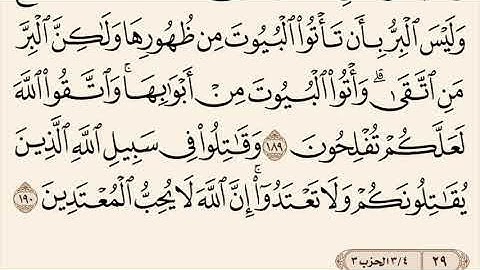 وَلَيْسَ ٱلْبِرُّ بِأَن تَأْتُوا۟ ٱلْبُيُوتَ مِن ظُهُورِهَا وَلَٰكِنَّ ٱلْبِرَّ
مَنِ ٱتَّقَىٰ ۗ وَأْتُوا۟ ٱلْبُيُوتَ مِنْ أَبْوَٰبِهَا ۚ وَٱتَّقُوا۟ ٱللَّهَ
لَعَلَّكُمْ تُفْلِحُونَ ١٨٩ وَقَٰتِلُوا۟ فِى سَبِيلِ ٱللَّهِ ٱلَّذِينَ
يُقَٰتِلُونَكُمْ وَلَا تَعْتَدُوٓا۟ ۚ إِنَّ ٱللَّهَ لَا يُحِبُّ ٱلْمُعْتَدِينَ ١٩٠
٢٩ ٣/٤ الحزب ٣